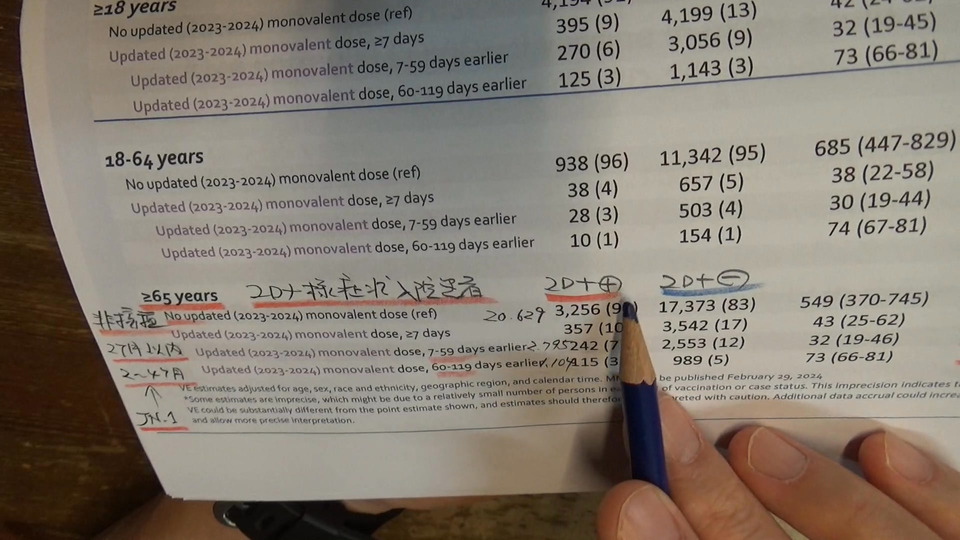 ≥18 years
No updated (2023-2024) monovalent dose (ref)
Updated (2023-2024) monovalent dose, ≥7 days 395 (9) 4,199 (13) 32 (19-45)
Updated (2023-2024) monovalent dose, 7-59 days earlier 270 (6) 3,056 (9) 73 (66-81)
Updated (2023-2024) monovalent dose, 60-119 days earlier 125 (3) 1,143 (3)
18-64 years
No updated (2023-2024) monovalent dose (ref) 938 (96) 11,342 (95) 685 (447-829)
Updated (2023-2024) monovalent dose, ≥7 days 38 (4) 657 (5) 38 (22-58)
Updated (2023-2024) monovalent dose, 7-59 days earlier 28 (3) 503 (4) 30 (19-44)
Updated (2023-2024) monovalent dose, 60-119 days earlier 10 (1) 154 (1) 74 (67-81)
≥65 years コロナ様症状入院患者 コロナ⊕ コロナ⊖
非接種 No updated (2023-2024) monovalent dose (ref) 20.629 3,256 17,373 (83) 549 (370-745)
Updated (2023-2024) monovalent dose, ≥7 days 357 3,542 (17) 43 (25-62)
2ヶ月以内 Updated (2023-2024) monovalent dose, 7-59 days earlier 2.795 242 2,553 (12) 32 (19-46)
2〜4ヶ月 Updated (2023-2024) monovalent dose, 60-119 days earlier 1.104 115 989 (5) 73 (66-81)
↑
JN.1
VE estimates adjusted for age, sex, race and ethnicity, geographic region, and calendar time. be published February 29, 2024
*Some estimates are imprecise, which might be due to a relatively small number of persons in of vaccination or case status. This imprecision indicates
VE could be substantially different from the point estimate shown, and estimates should with caution. Additional data accrual could
and allow more precise interpretation.